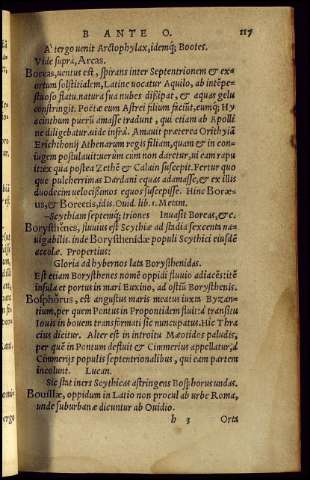 B ANTE O. 117
A' tergo uenit Arctophylax, idemq́; Bootes.
Vide suprà, Arcas.
Boreas, uentus est, spirans inter Septentrionem & ex-
ortum solstitialem, Latinè uocatur Aquilo, ab impe-
tuoso flatu, natura sua nubes dissipat, & aquas gelu
constringit. Poëtæ eum Astrei filium faciũt, eumq́; Hy
acinthum puerũ amasse tradunt, qui etiam ab Apolli
ne diligebatur. uide infrà. Amauit præterea Orithyiã
Erichthonij Athenarum regis filiam, quam & in con-
iugem postulauit: uerùm cum non daretur, ui eam rapu
it: ex qua postea Zethẽ & Calain suscepit. Fertur quo
que pulcherrimas Dardani equas adamasse, & ex illis
duodecim uelocissimos equos suscepisse. Hinc Boræ-
us, & Boreetis, idis. Ouid. lib. 1. Metam.
--Scythiam septemq́; triones Inuasit Boreas, &c.
Borysthẽnes, fluuius est Scythiæ ad stadia sexcenta na-
uigabilis. inde Borysthenidæ populi Scythici eiusdẽ
accolæ. Propertius:
Gloria ad hybernos lata Borysthenidas.
Est etiam Borysthenes nomẽ oppidi fluuio adiacẽtis ẽ
insula et portus in mari Euxino, ad ostiũ Borysthenis.
Bosphorus, est angustus maris meatus iuxta Byzan-
tium, per quem Pontus in Propontidem fluit: à transitu
Iouis in bouem transformati sic nuncupatus. Hic Thra
cius dicitur. Alter est in introitu Mæotides paludis,
per quẽ in Pontum defluit & Cimmerius appellatur, à
Cimmerijs populis septentrionalibus, qui eam partem
incolunt. Lucan.
Sic stat iners Scythicas astringens Bosphorus undas.
Bouillæ, oppidum in Latio non procul ab urbe Roma,
unde suburbanæ dicuntur ab Ouidio.
h 3 Orta